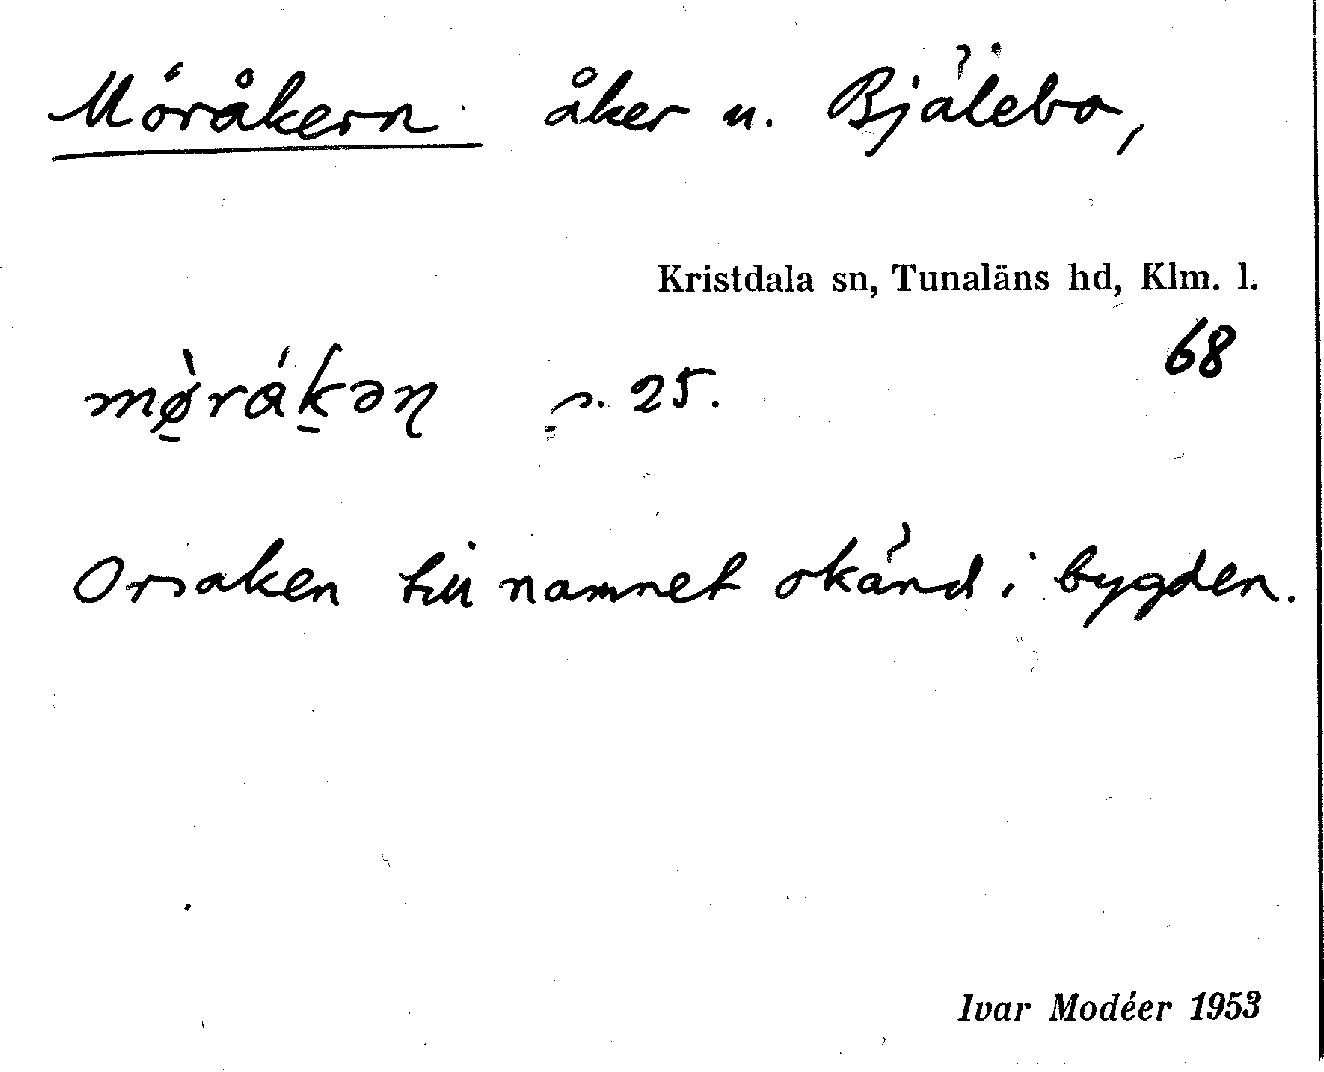 Möråkern åker u. Bjälebo,
Kristdala sn, Tunaläns hd, Klm. l.
68
mø̱̀rɑ́ḵəꞃ s. 25.
Orsaken till namnet okänd i bygden.
Ivar Modéer 1953